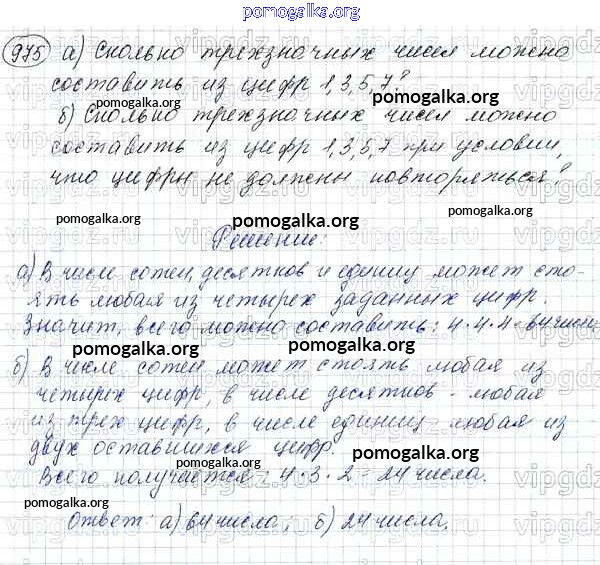 pomogalka.org
975 а) Сколько трехзначных чисел можно
составить из цифр 1,3,5,7?
pomogalka.org
б) Сколько трехзначных чисел можно
составить из цифр 1,3,5,7 при условии,
что цифры не должны повторяться?
pomogalka.org pomogalka.org pomogalka.org
Решение:
а) В числе сотен, десятков и единиц может сто-
ять любая из четырех заданных цифр.
Значит, всего можно составить: 4·4·4=64 числа
pomogalka.org pomogalka.org
б) В числе сотен может стоять любая из
четырех цифр, в числе десятков - любая
из трех цифр, в числе единиц любая из
двух оставшихся цифр.
pomogalka.org pomogalka.org
Всего получается: 4·3·2=24 числа.
pomogalka.org pomogalka.org
Ответ: а) 64 числа; б) 24 числа.